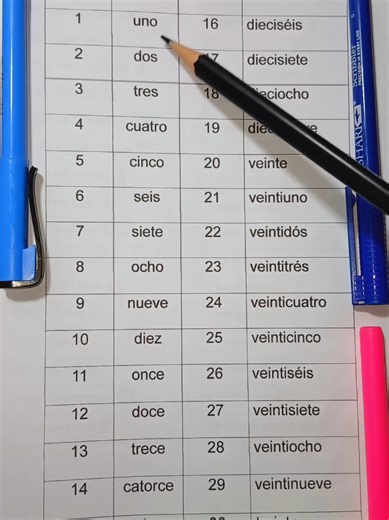 1 uno 16 dieciséis
2 dos 17 diecisiete
3 tres 18 dieciocho
4 cuatro 19
5 cinco 20 veinte
6 seis 21 veintiuno
7 siete 22 veintidós
8 ocho 23 veintitrés
9 nueve 24 veinticuatro
10 diez 25 veinticinco
11 once 26 veintiséis
12 doce 27 veintisiete
13 trece 28 veintiocho
14 catorce 29 veintinueve
Scribbler
SHARK